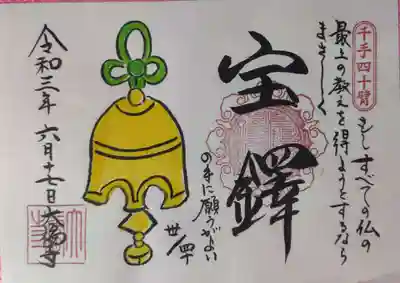 千手四十臂
もしすべての仏の
最上の教えを得ようとするなら
まさしく
宝鐸
の手に願うがよい
廿/四十
令和三年 六月十七日 大福寺